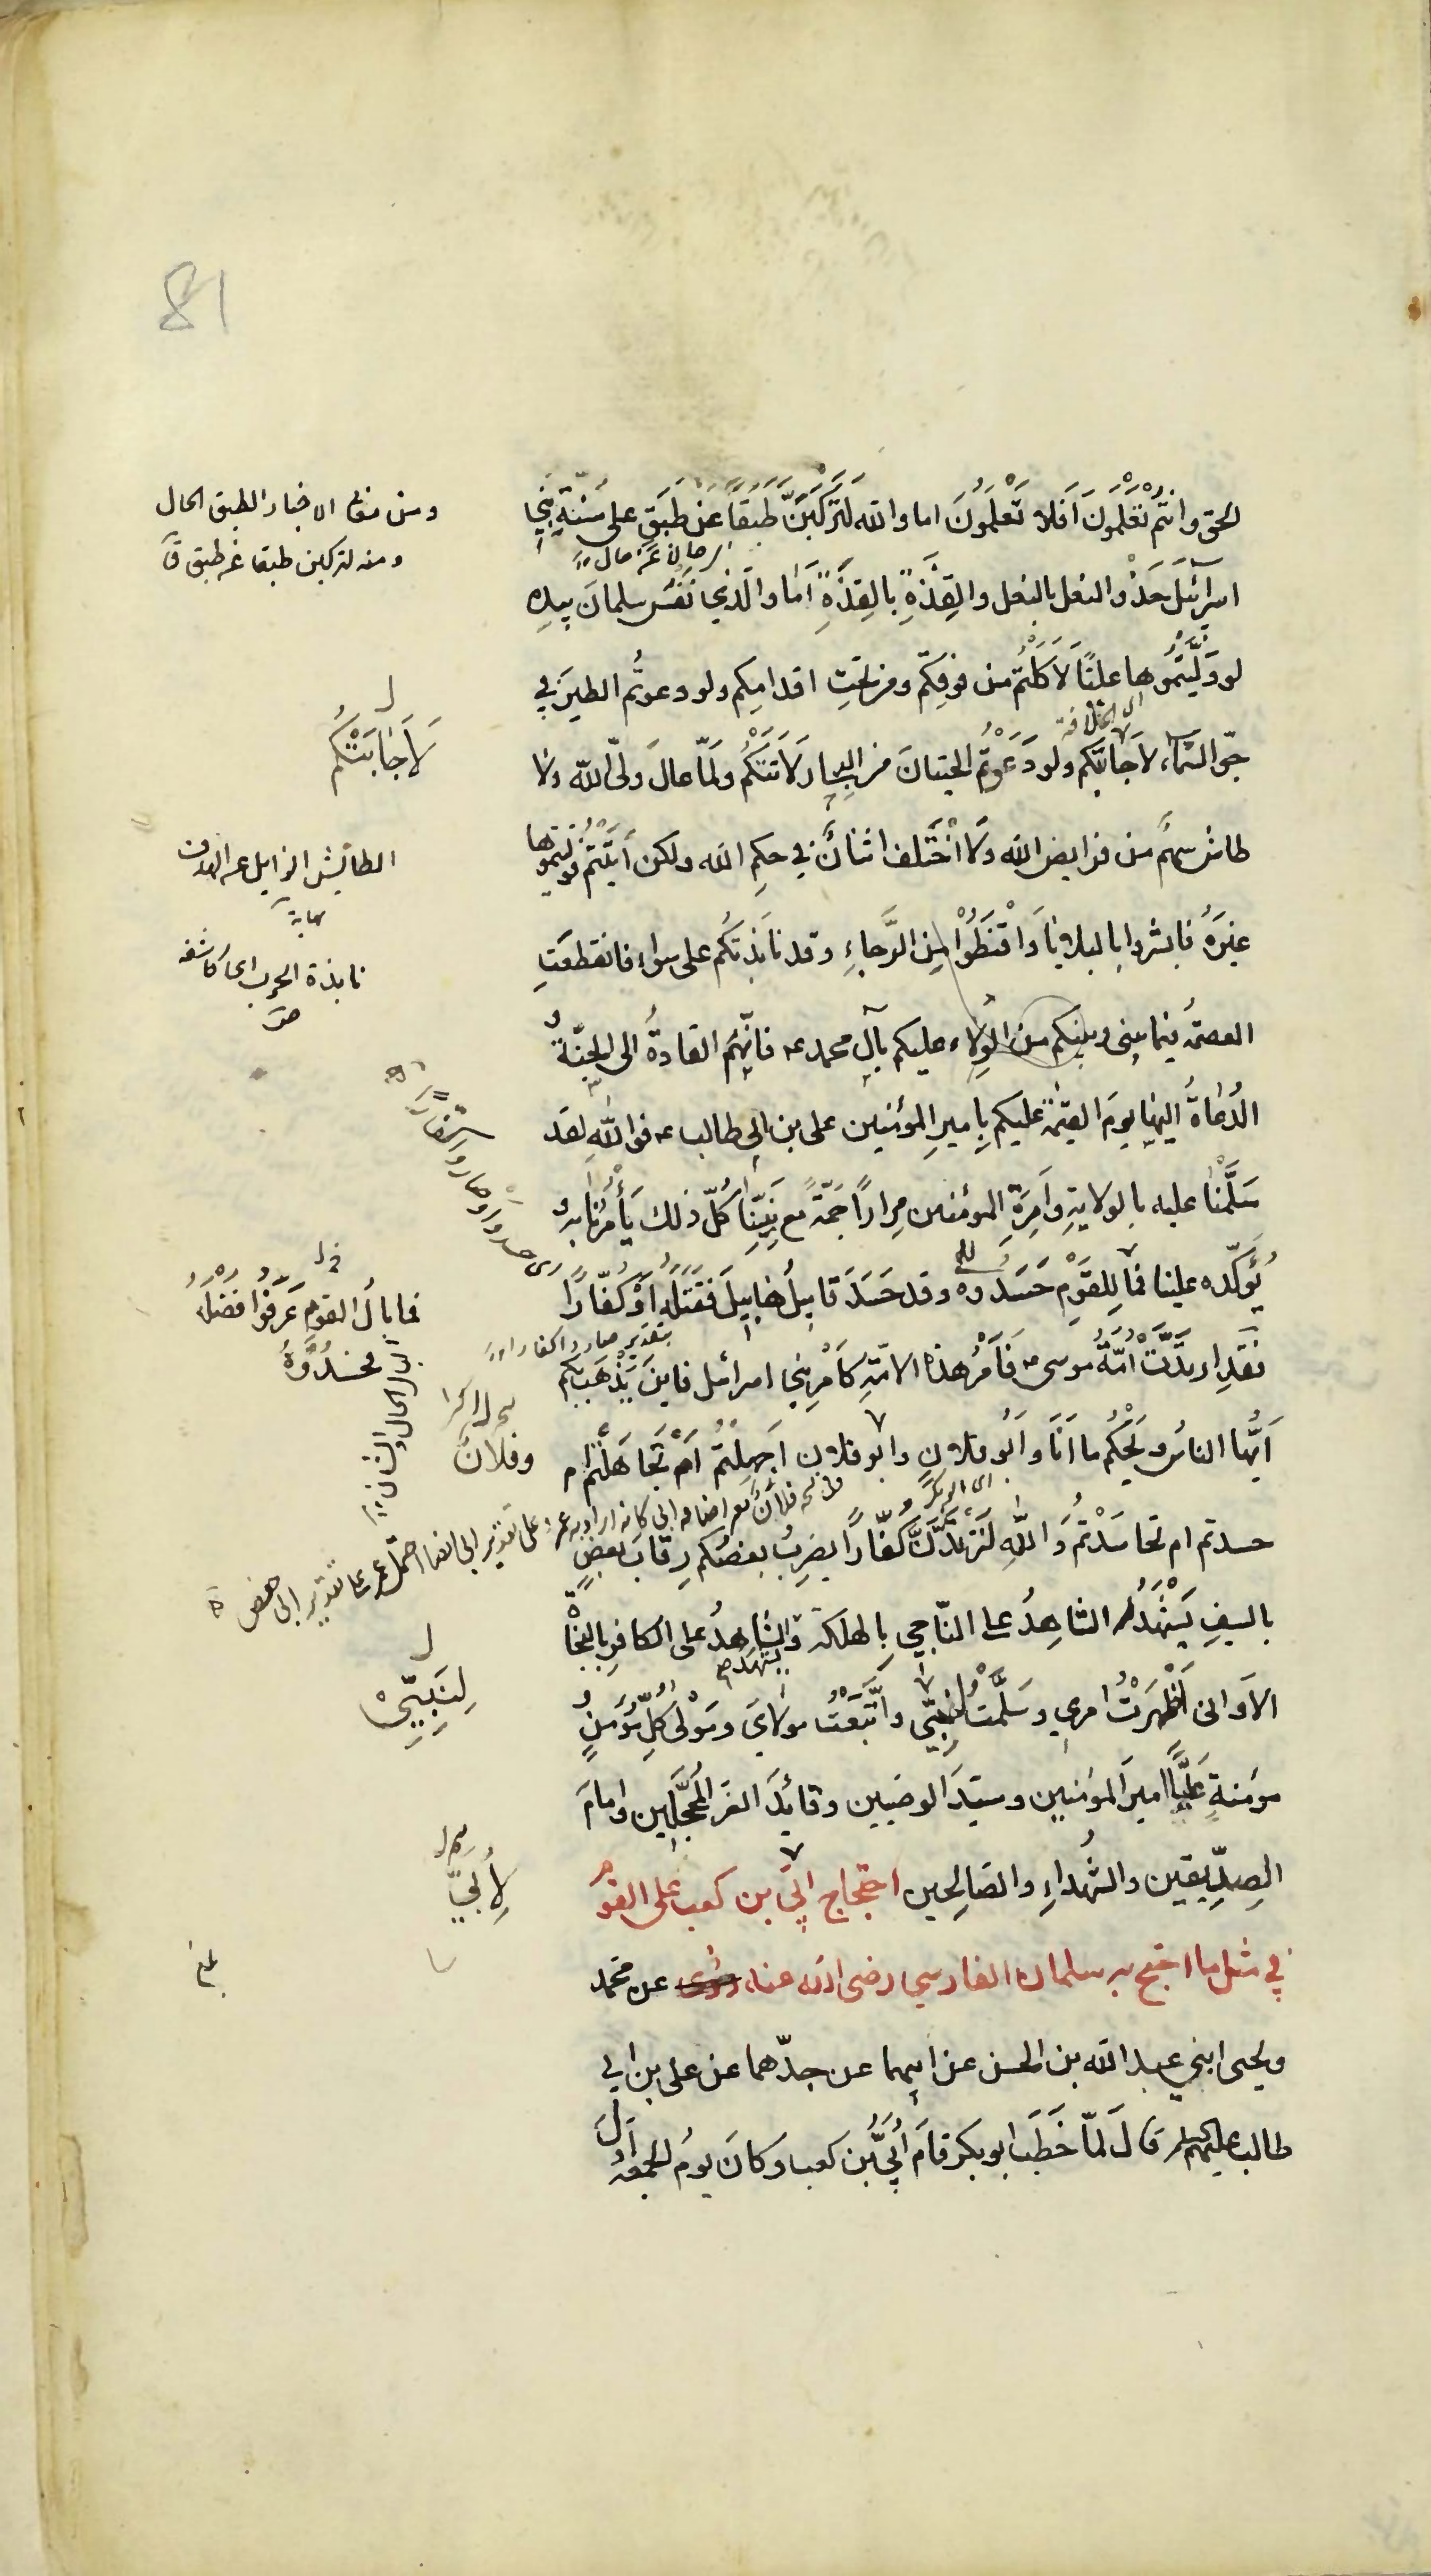 81
الحق وانتم تعلمون افلا تعلمون اما والله لتركبن طبقا عن طبق على سنة بني
اسرائيل حذو النعل بالنعل والقذة بالقذة اما والذي نفس سلمان بيده
لو وليتموها عليًا لاكلتم من فوقكم ومن تحت اقدامكم ولو دعوتم الطير في
جو السماء لاجابتكم ولو دعوتم الحيتان من البحار لاتتكم ولما عال ولي الله ولا
طاش سهم من فرايض الله ولا اختلف اثنان في حكم الله ولكن ابيتم فوليتموها
غيره فابشروا بالبلايا واقنطوا من الرجاء وقد نابذتكم على سواء فانقطعت
العصمة فيما بيني وبينكم من الولاء عليكم بآل محمد ع فانهم القادة الى الجنة و
الدعاة اليها يوم القيمة عليكم بامير المؤمنين على بن ابي طالب ع فوالله لقد
سلمنا عليه بالولاية وامرة المؤمنين مرارًا جمة مع نبينا كل ذلك يأمرنا به و
يؤكده علينا فما للقوم حسدوه وقد حسد قابيل هابيل فقتله او كفارًا
فقد ارتدت امة موسى فامر هذه الامة كامر بني اسرائيل فاين يذهب بكم
ايها الناس ويحكم ما انا وابو فلان وابو فلان اجهلتم ام تجاهلتم ام
حسدتم ام تحاسدتم والله لترتدن كفارًا يضرب بعضكم رقاب بعض
بالسيف يشهد الشاهد على الناجي بالهلكة والشاهد على الكافر بالنجاة
الا واني اظهرت امري وسلمت لنبيي واتبعت مولاي ومولى كل مؤمن و
مؤمنة عليًا امير المؤمنين وسيد الوصيين وقائد الغر المحجلين وامام
الصديقين والشهداء والصالحين احتجاج ابي بن كعب على القوم
في مثل ما احتج به سلمان الفارسي رضي الله عنه عن محمد
ويحيى ابني عبد الله بن الحسن عن ابيهما عن جدهما عن على بن ابي
طالب عليهم قال لما خطب ابو بكر قام ابي بن كعب وكان يوم الجمعة اول
ومن معاني الاخبار الطبق الحال
ومنه لتركبن طبقا عن طبق ق
لاجابتكم
الطائيش الزايل عن الهدف
نهاية
نابذة الحرب اى كاشفه
ص
فما بال القوم عرفوا فضله
فحسدوه
وفلان
لنبيي
لأبي